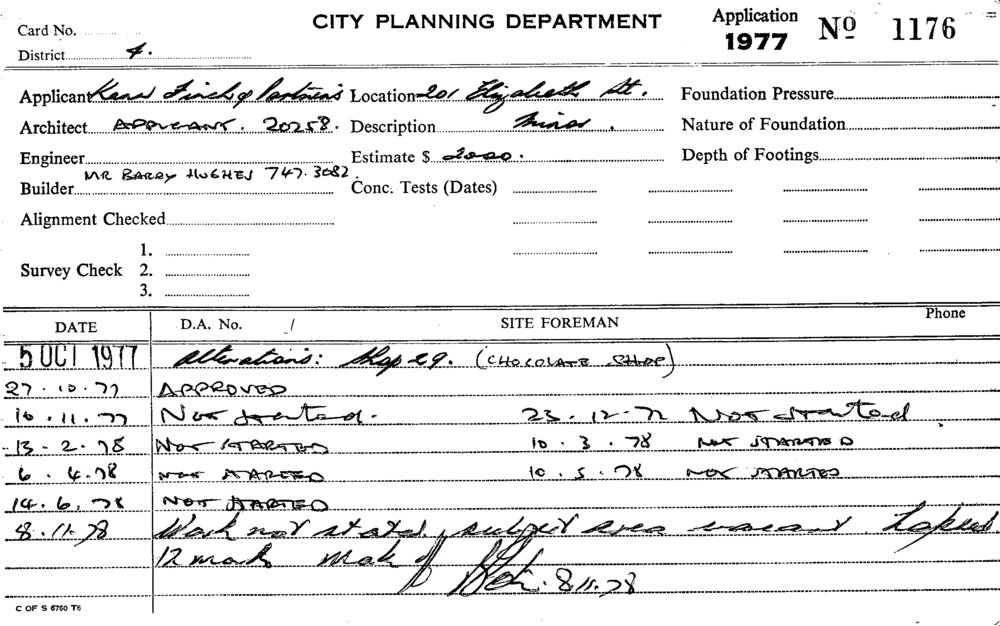 CITY PLANNING DEPARTMENT
Application 1977 Nº 1176
Card No.
District 4.
Applicant Finch & Partners Location 201 Elizabeth St. Foundation Pressure
Architect APPLICANT. 20258. Description Minor. Nature of Foundation
Engineer Estimate $ 2000. Depth of Footings
Builder MR BARRY HUGHES 747.3082. Conc. Tests (Dates)
Alignment Checked
Survey Check 1.
2.
3.
DATE D.A. No. / SITE FOREMAN Phone
5 OCT 1977 Alterations: Shop 29. (CHOCOLATE SHOP)
27.10.77 APPROVED
10.11.77 Not started. 23.12.77 Not started
13-2.78 NOT STARTED 10.3.78 NOT STARTED
6.4.78 NOT STARTED 10.5.78 NOT STARTED
14.6.78 NOT STARTED
8.11.78 Work not stated, subject area vacant. Lapsed
12 8.11.78
C OF S 6750 T6